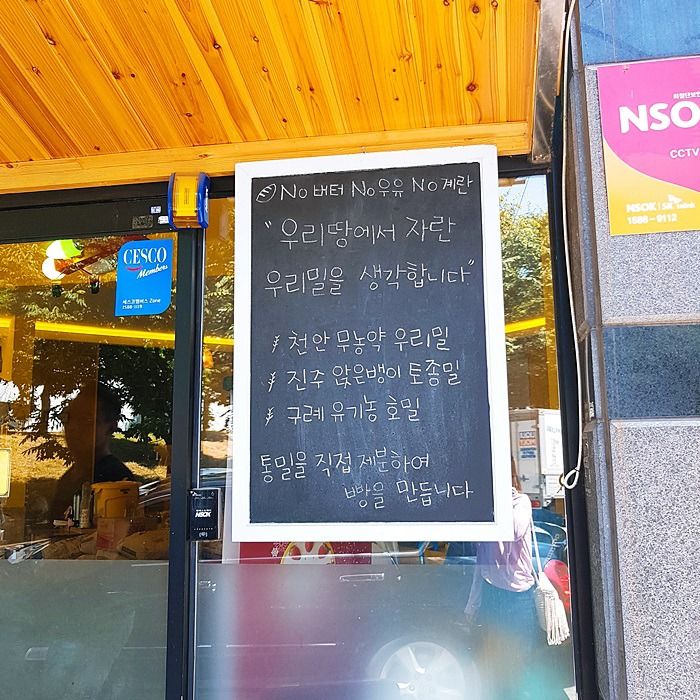 No버터 No우유 No계란
"우리땅에서 자란
우리밀을 생각합니다"
천안 무농약 우리밀
진주 앉은뱅이 토종밀
구례 유기농 호밀
통밀을 직접 제분하여
빵을 만듭니다
CESCO
Members
세스코멤버스 Zone
1588-1119
NSOK
NSO
CCTV
NSOK
1588-9112